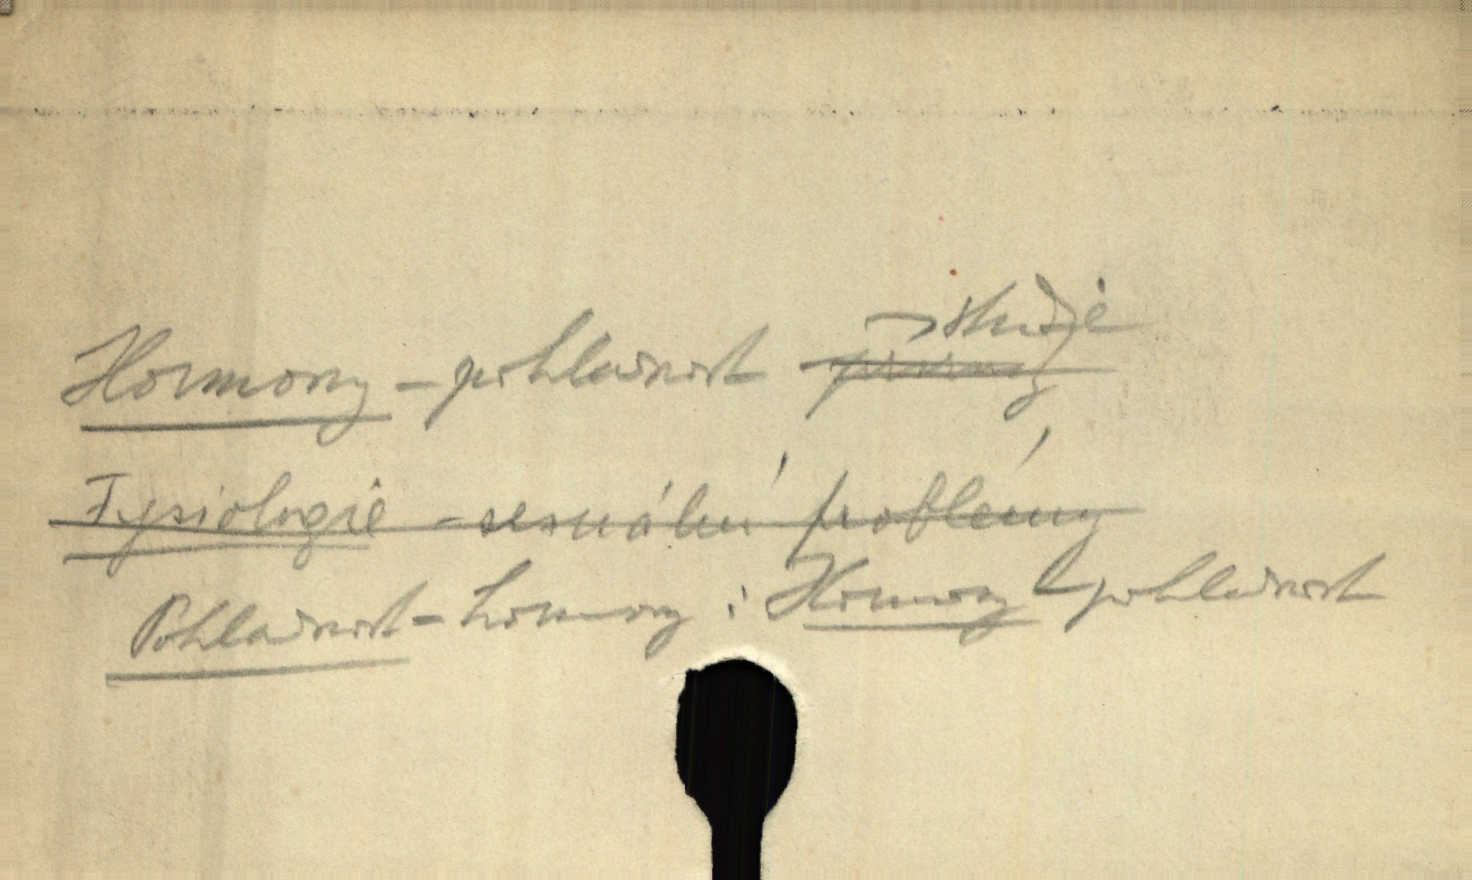 → studie
Hormony - pohlavnost
Fysiologie - sexuální problémy
Pohlavnost - hormony : Hormony - pohlavnost